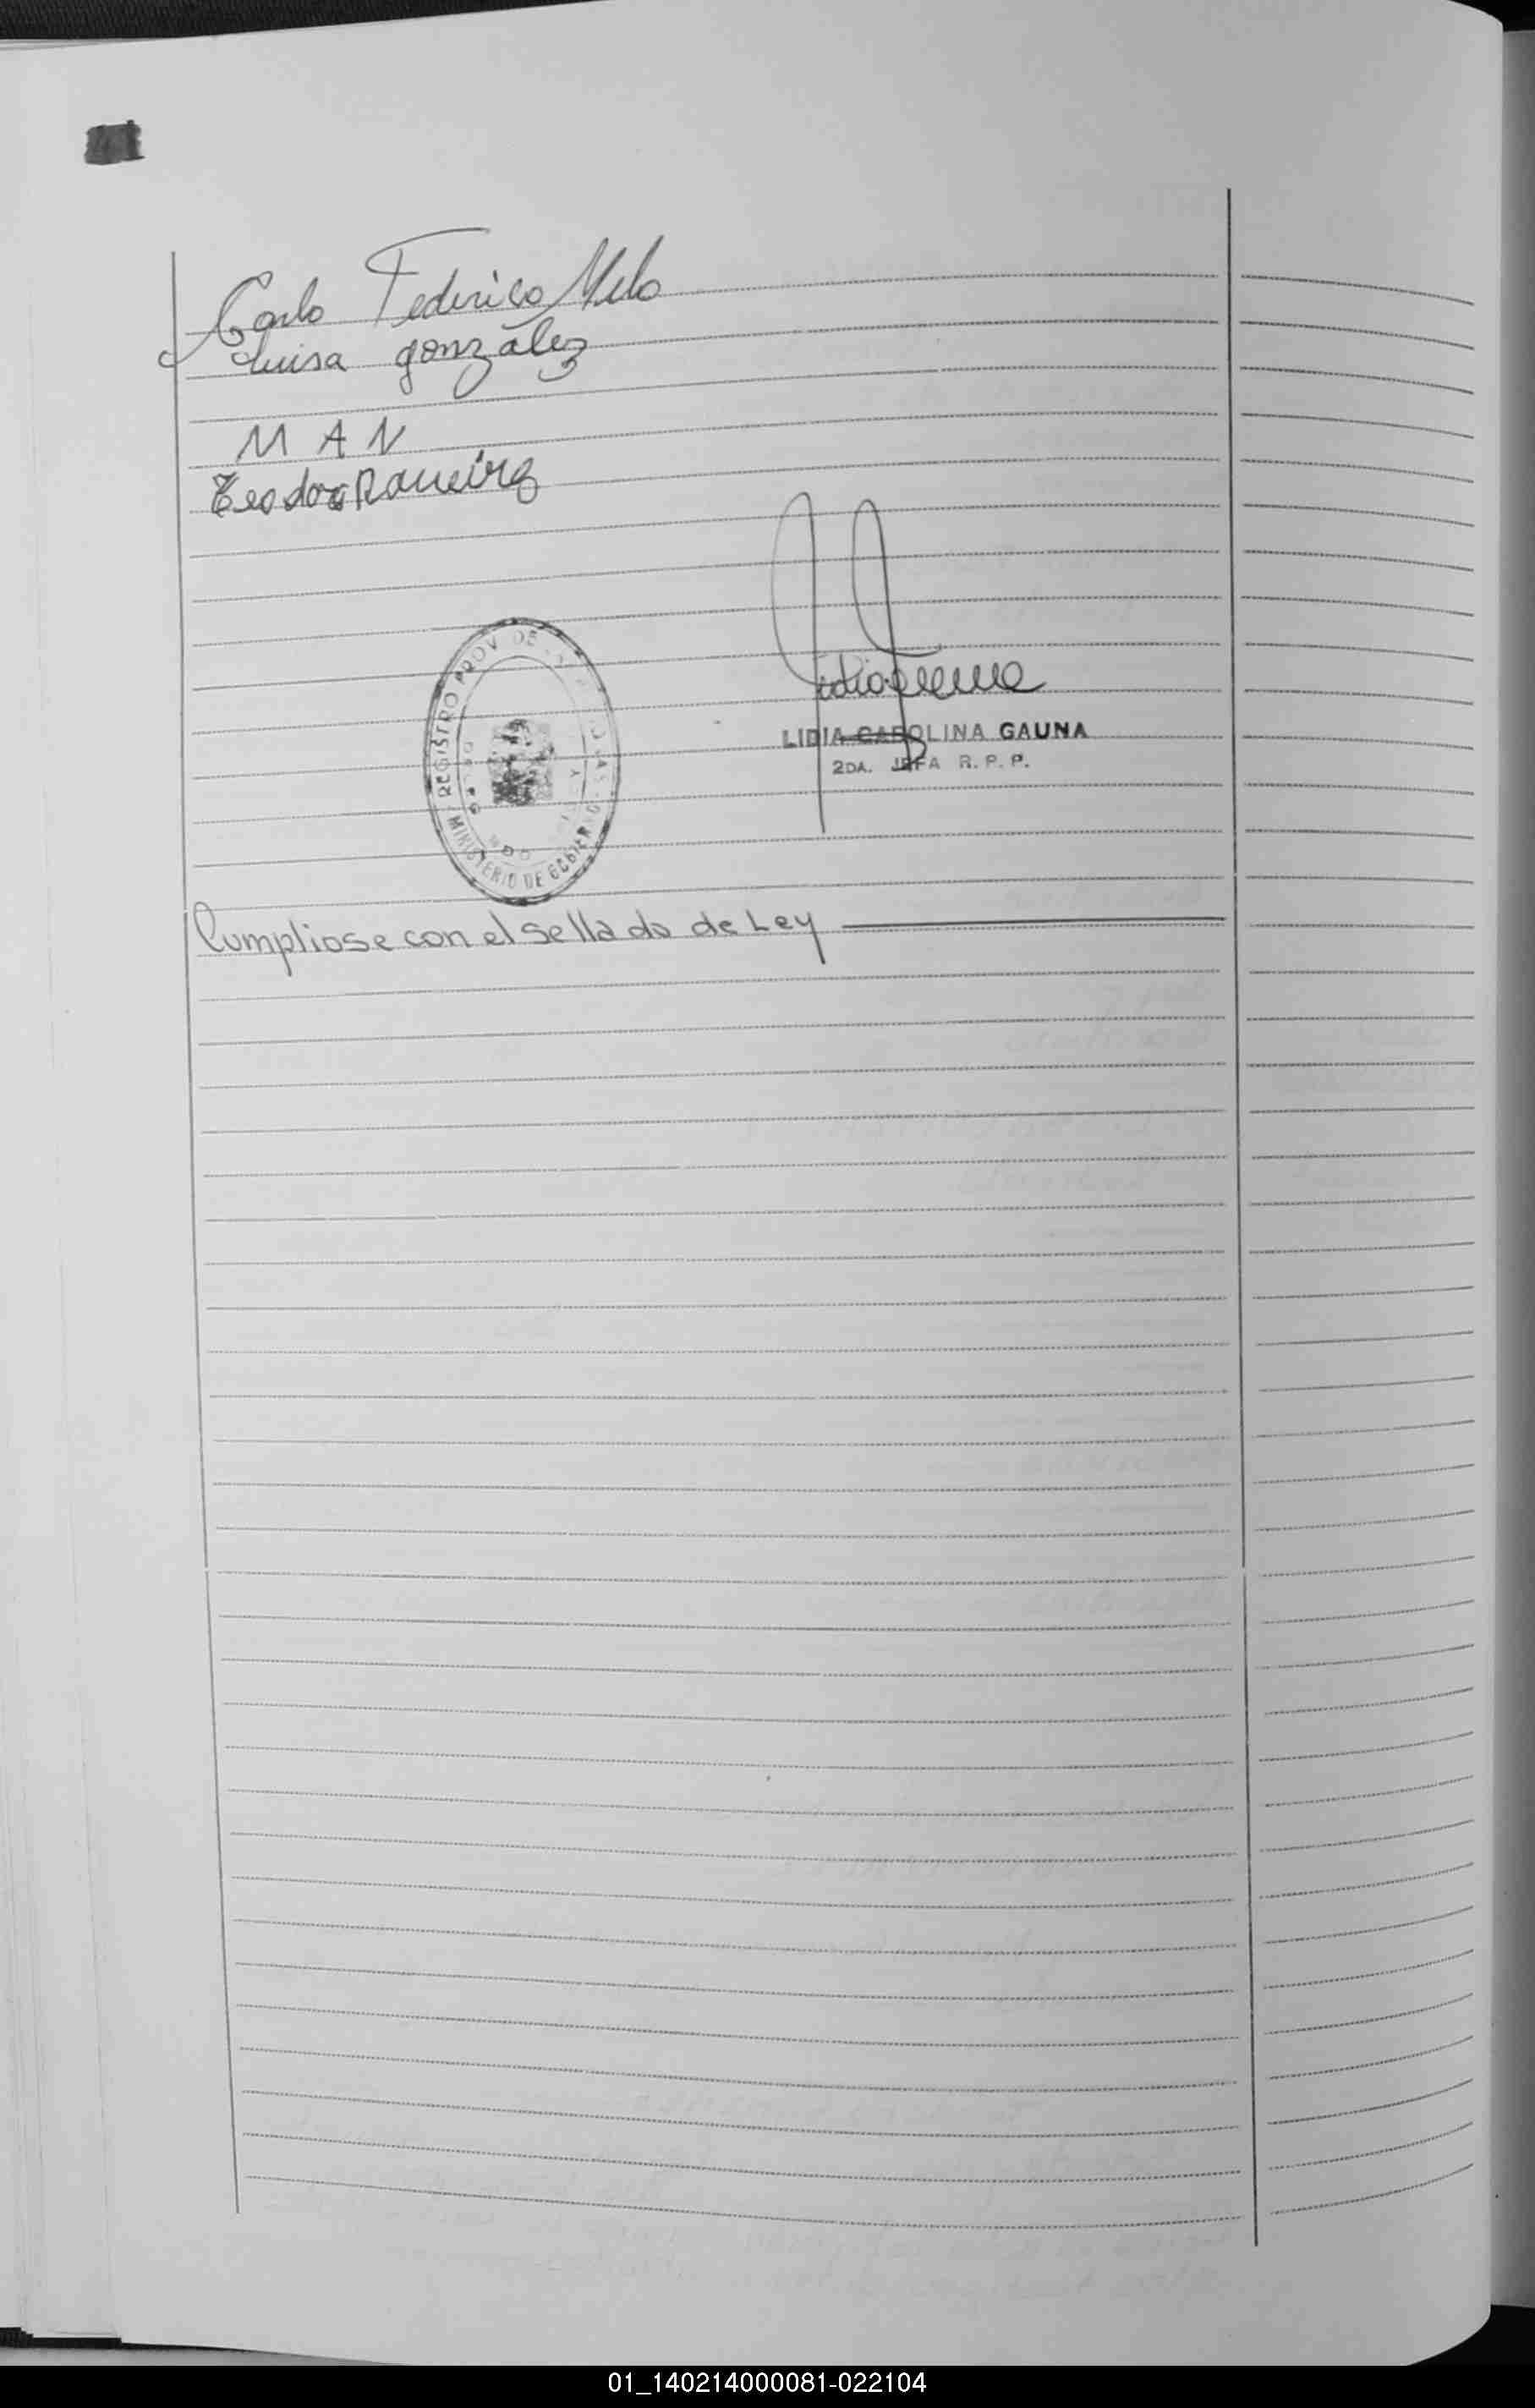 Carlo Federico Melo
Luisa gonzález
M A N
Teodora Rameirez
REGISTRO PROV. DE
MINISTERIO DE GOBIERNO
LIDIA CAROLINA GAUNA
2DA. JEFA R. P. P.
Cumpliose con el sellado de Ley
01_140214000081-022104